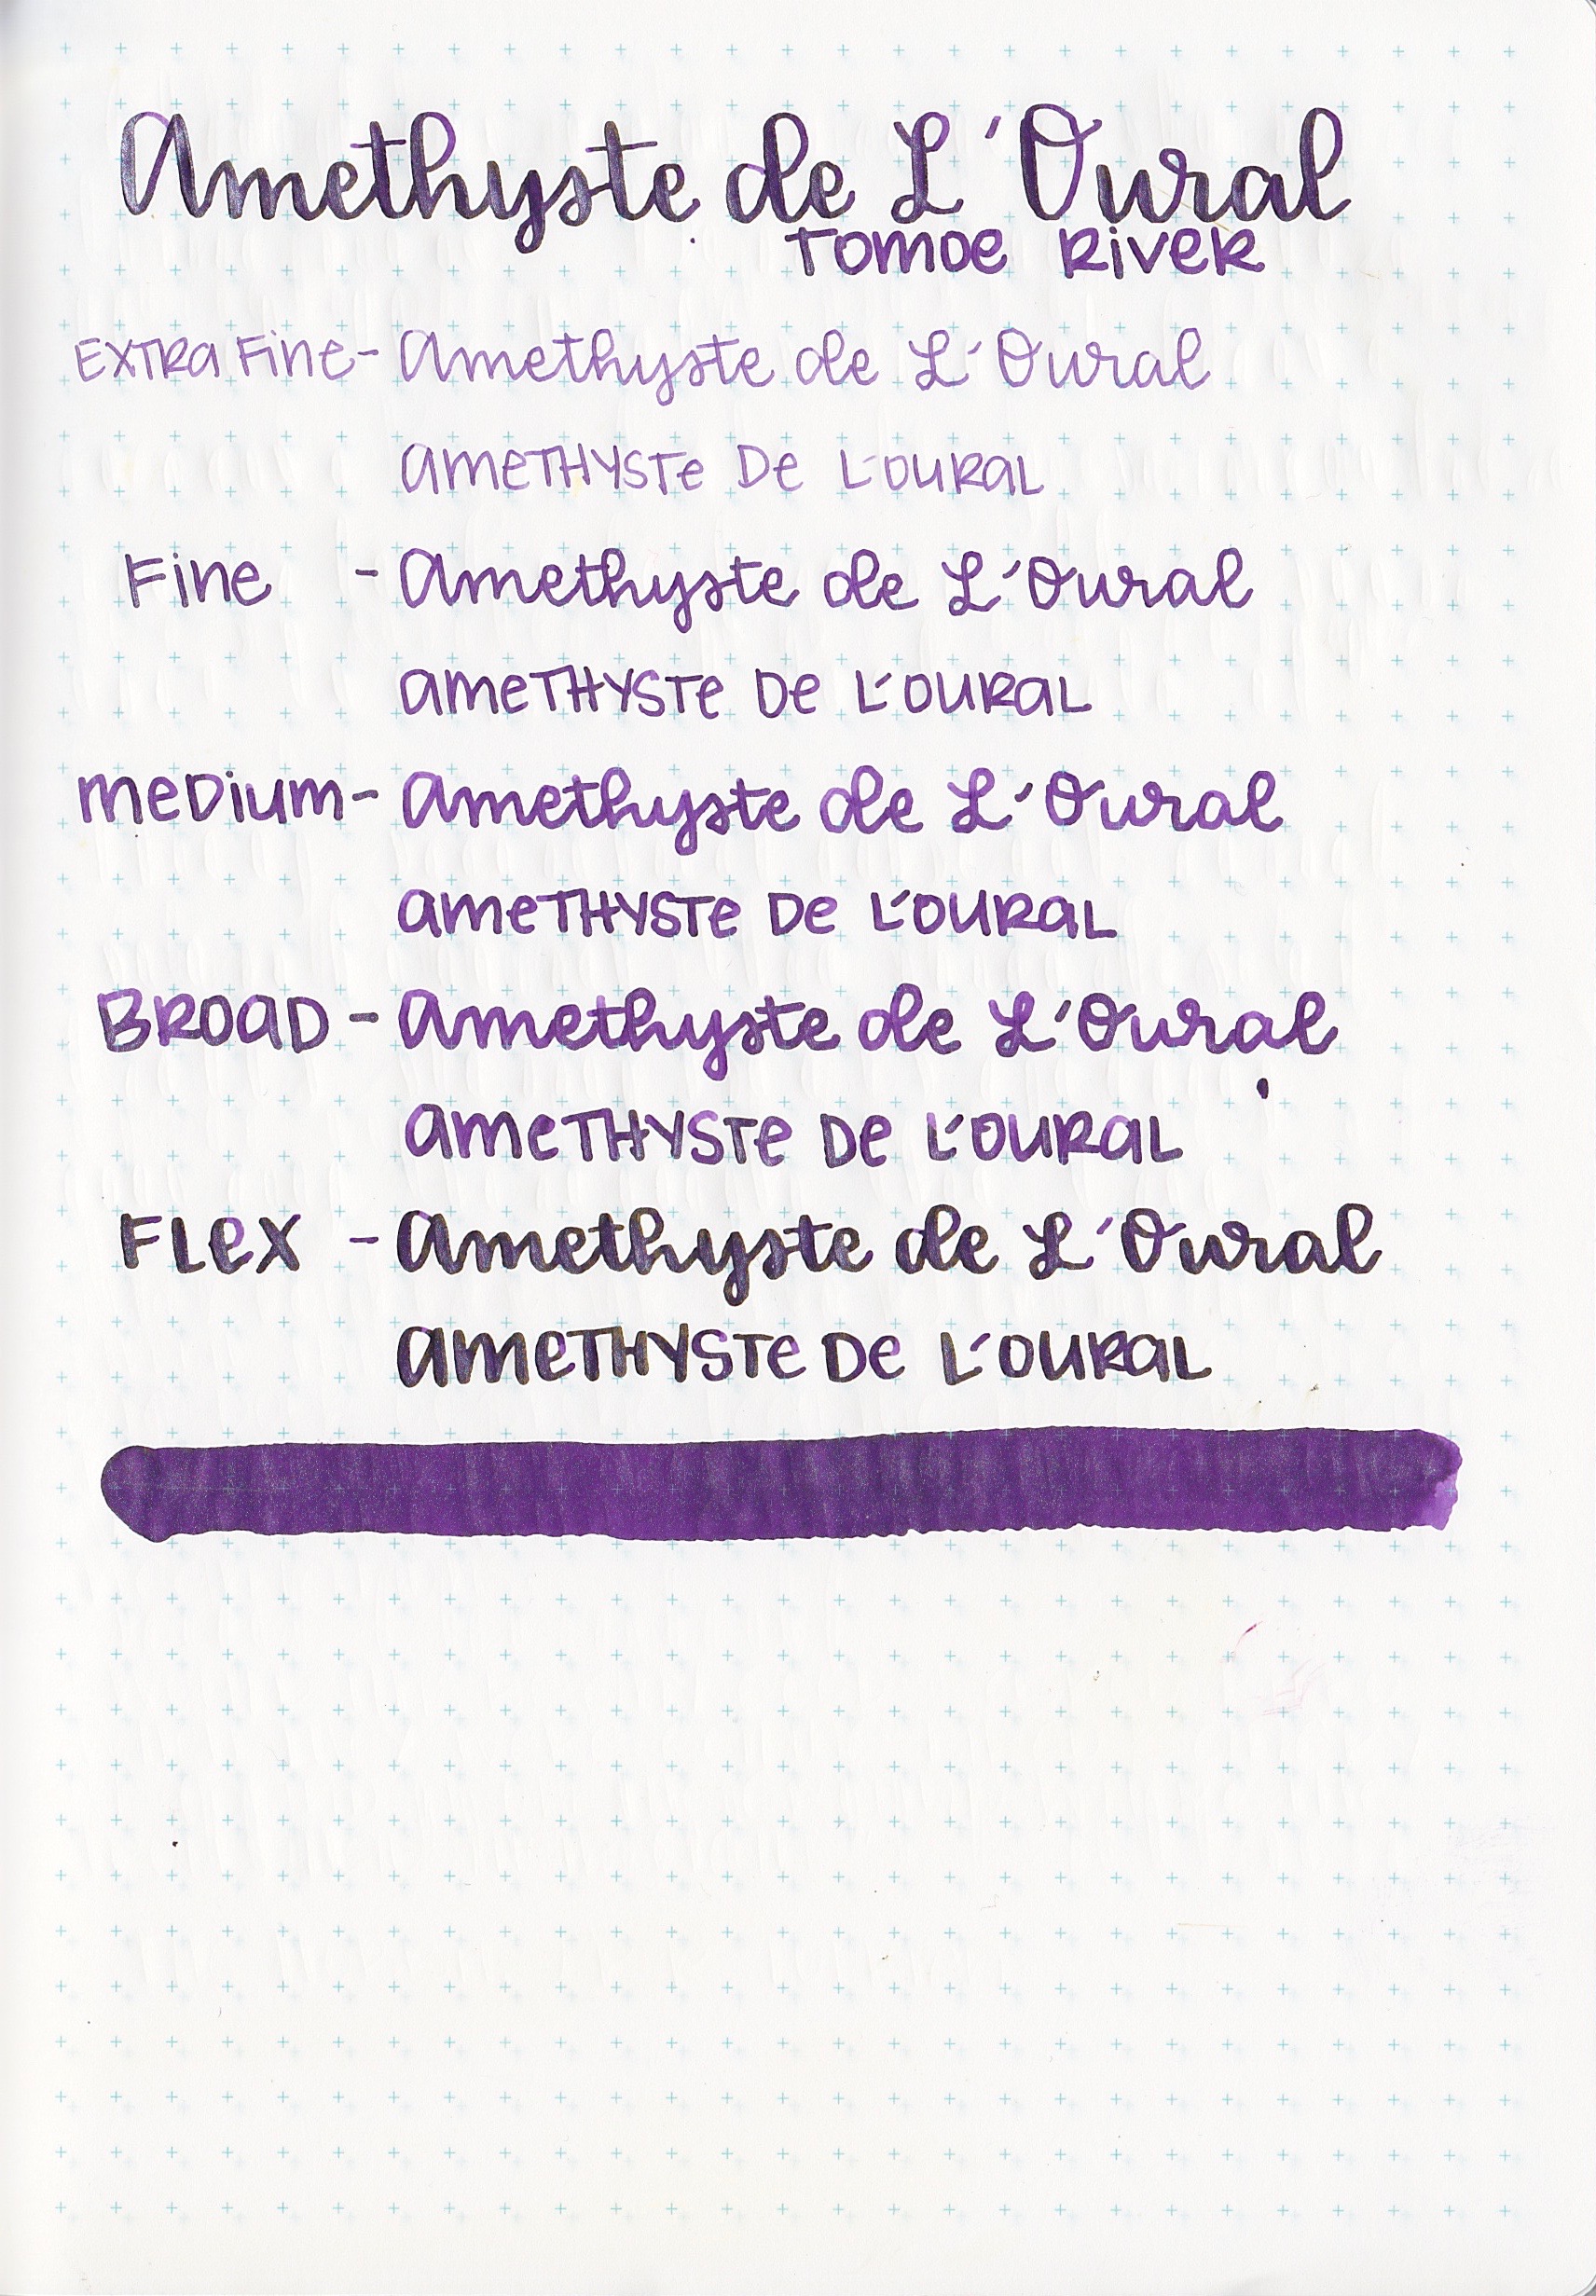 Amethyste de L'Oural
Tomoe River
Extra Fine - Amethyste de L'Oural
Amethyste de L'Oural
Fine - Amethyste de L'Oural
Amethyste de L'Oural
Medium - Amethyste de L'Oural
Amethyste de L'Oural
Broad - Amethyste de L'Oural
Amethyste de L'Oural
Flex - Amethyste de L'Oural
Amethyste de L'Oural